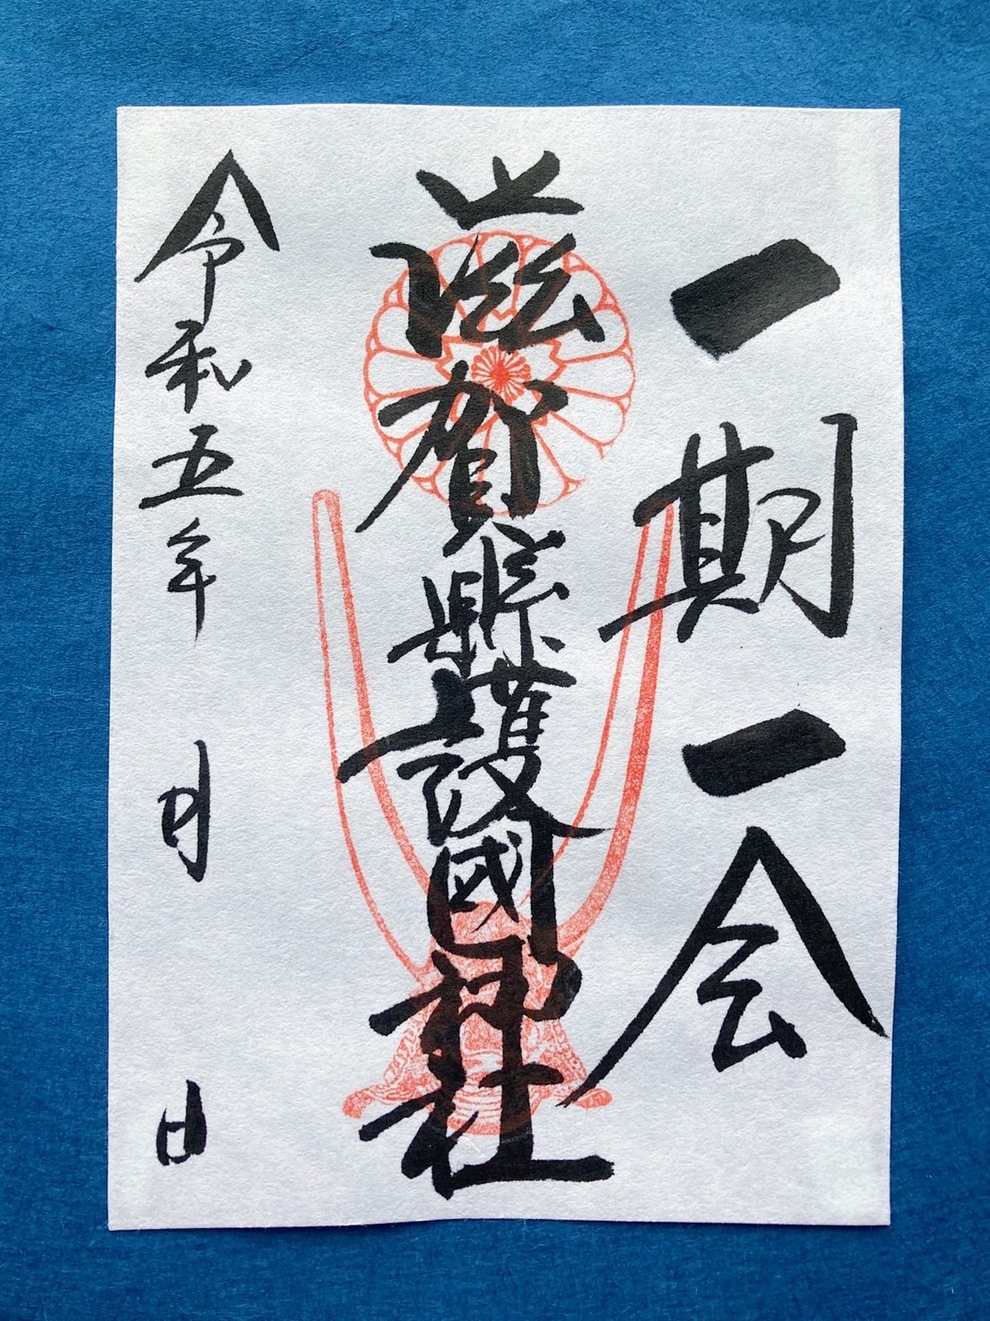 一期一会
滋賀縣護國神社
令和五年 月 日